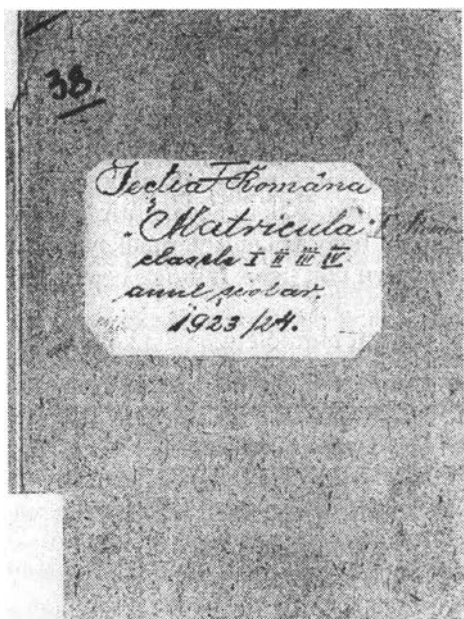 38.
Secția I Română
Matriculă
clasele I II III IV
anul școlar.
1923/24.